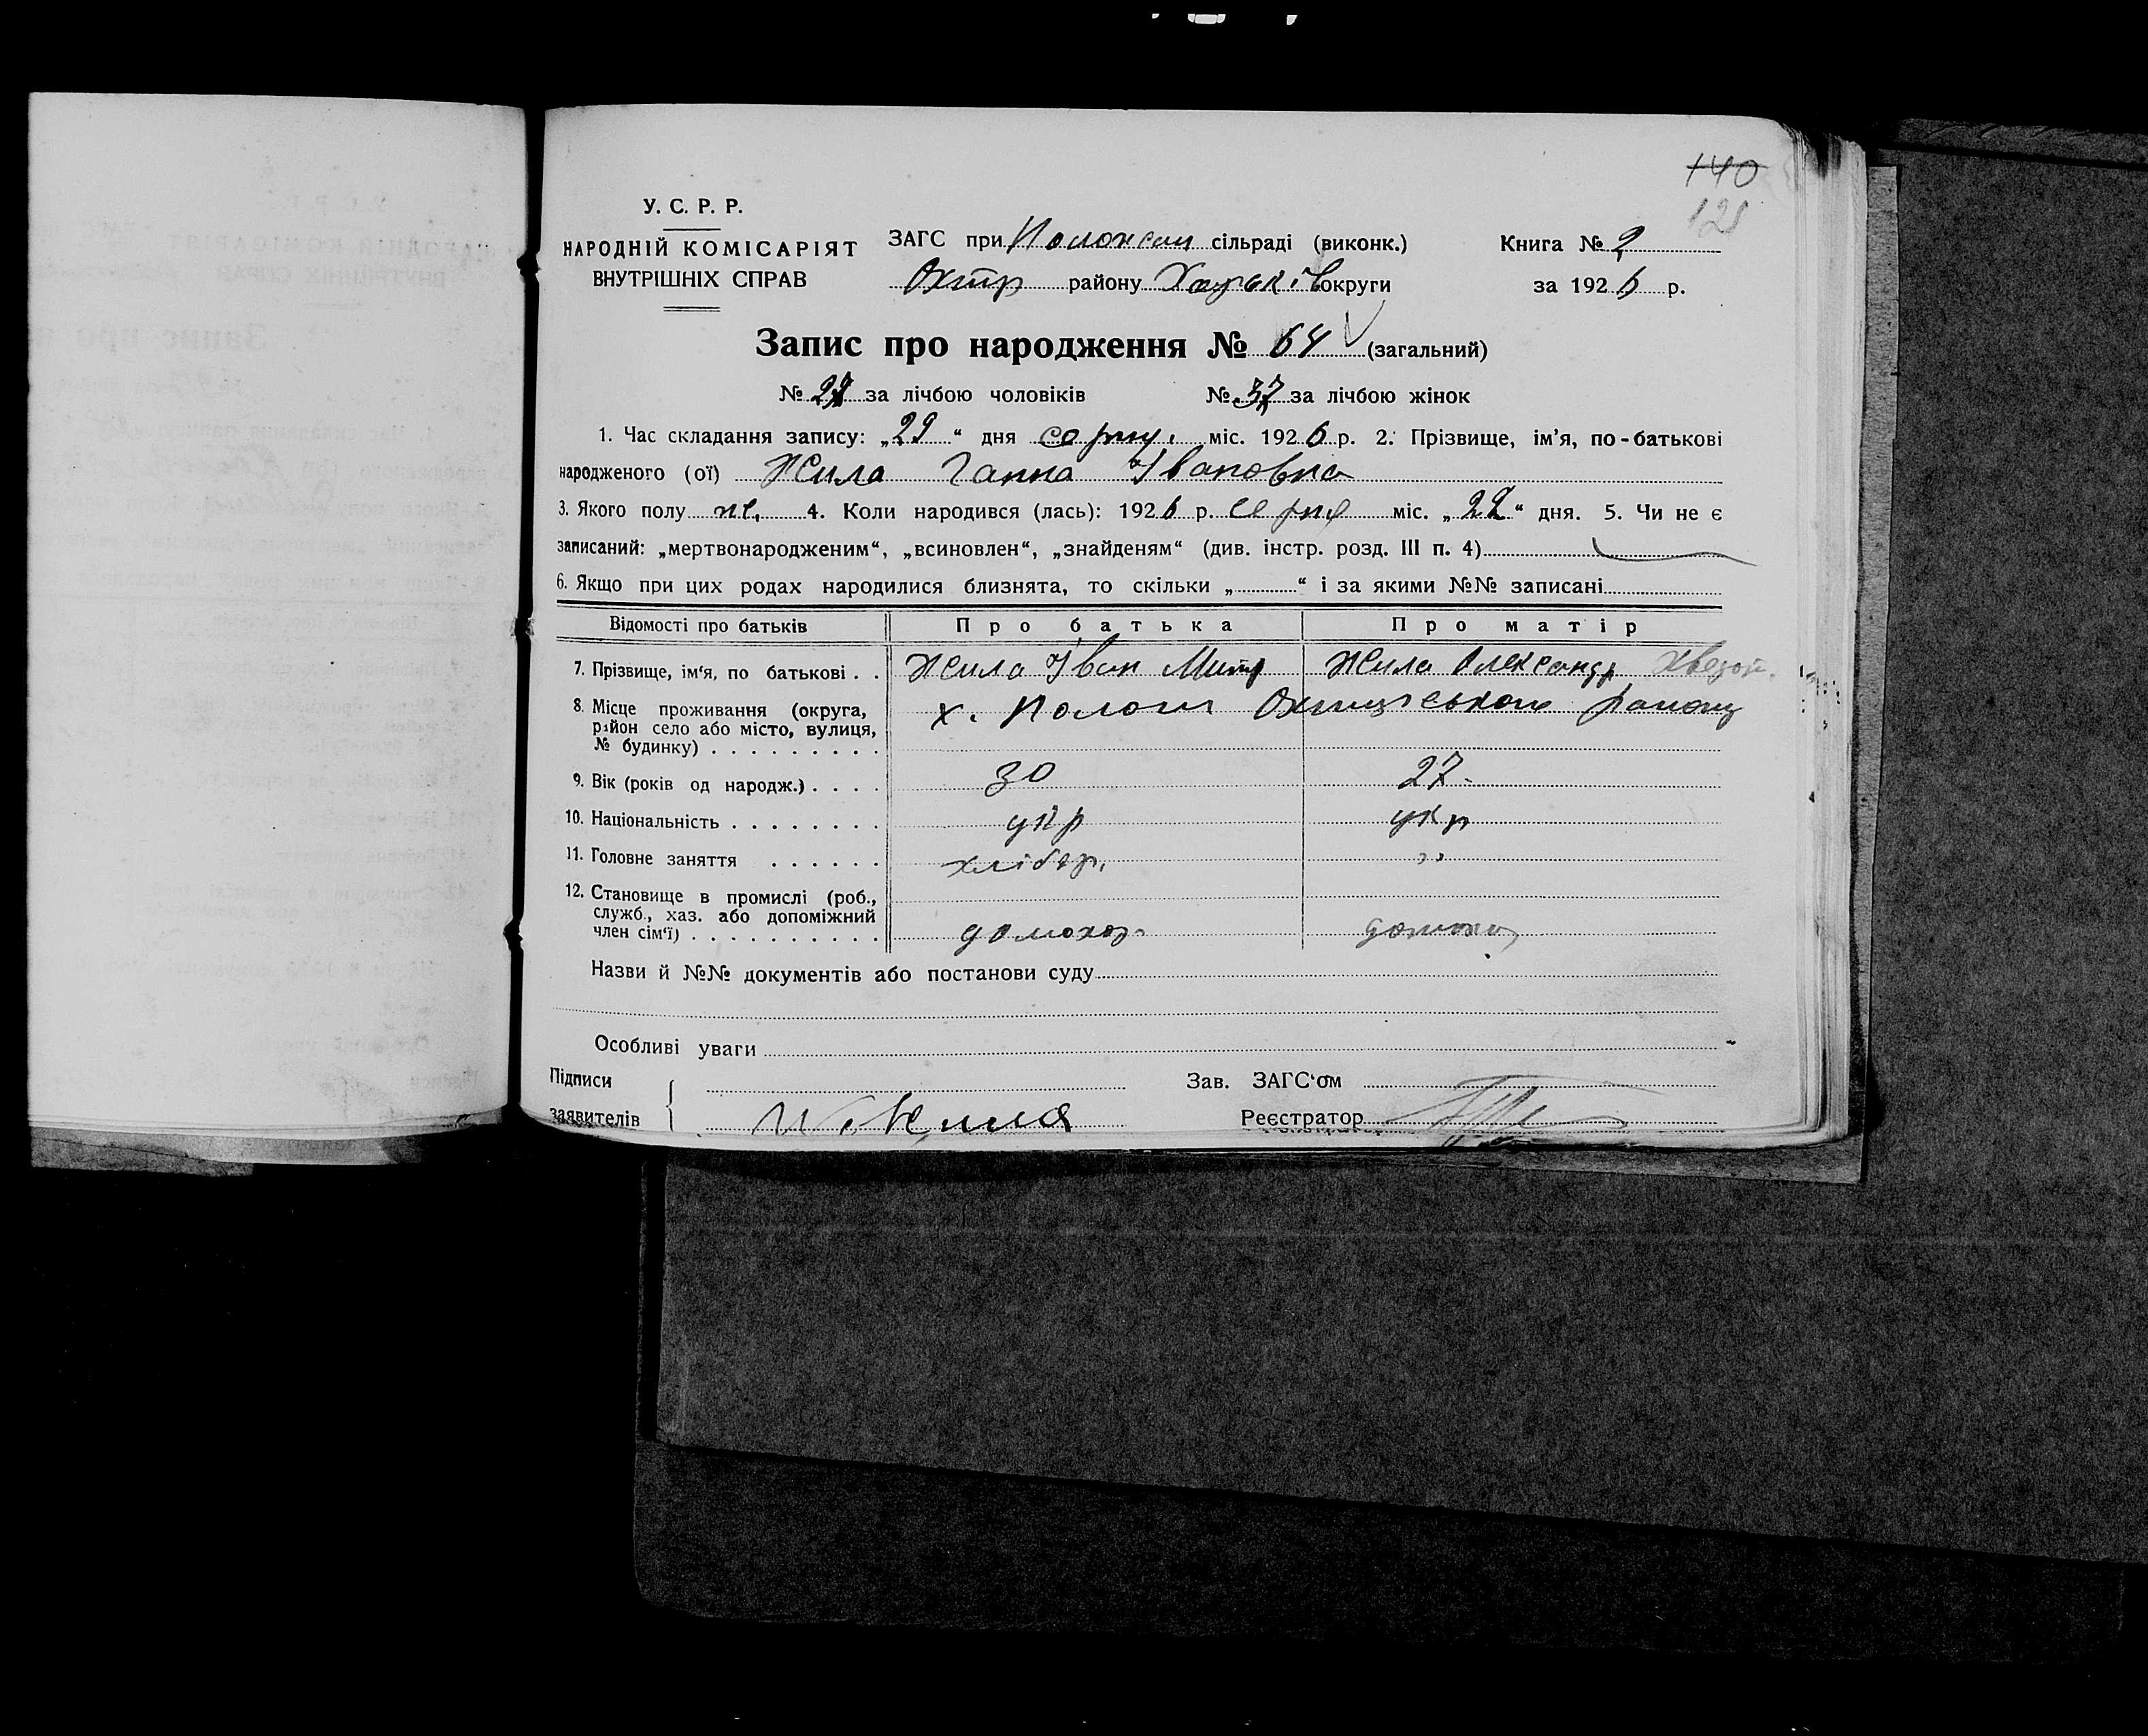 140
У. С. Р. Р.
НАРОДНІЙ КОМІСАРІЯТ
ВНУТРІШНІХ СПРАВ
ЗАГС при сільраді (виконк.)
Охтр району Харьків округи
Книга № 2
за 1926 р.
Запис про народження № 64 (загальний)
№ за лічбою чоловіків № 37 за лічбою жінок
1. Час складання запису: „29“ дня міс. 1926 р. 2. Прізвище, ім’я, по-батькові
народженого (ої) Жила Ганна Івановна
3. Якого полу 4. Коли народився (лась): 1926 р. серпня міс. „22“ дня. 5. Чи не є
записаний: „мертвонародженим“, „всиновлен“, „знайденям“ (див. інстр. розд. III п. 4)
6. Якщо при цих родах народилися близнята, то скільки „ “ і за якими №№ записані
Відомості про батьків Про батька Про матір
7. Прізвище, ім‘я, по батькові . . Жила Іван Митр Жила Олександр
8. Місце проживання (округа,
район село або місто, вулиця,
№ будинку) . . . . . . . . .
х. Пологи району
9. Вік (років од народж.) . . . . 30 27
10. Національність . . . . . . . . укр укр
11. Головне заняття . . . . . . хлібор. „
12. Становище в промислі (роб.,
служб., хаз. або допоміжний
член сім‘ї) . . . . . . . . . . домохоз.
Назви й №№ документів або постанови суду
Особливі уваги
Підписи
заявителів
Зав. ЗАГС‘ом
Реєстратор